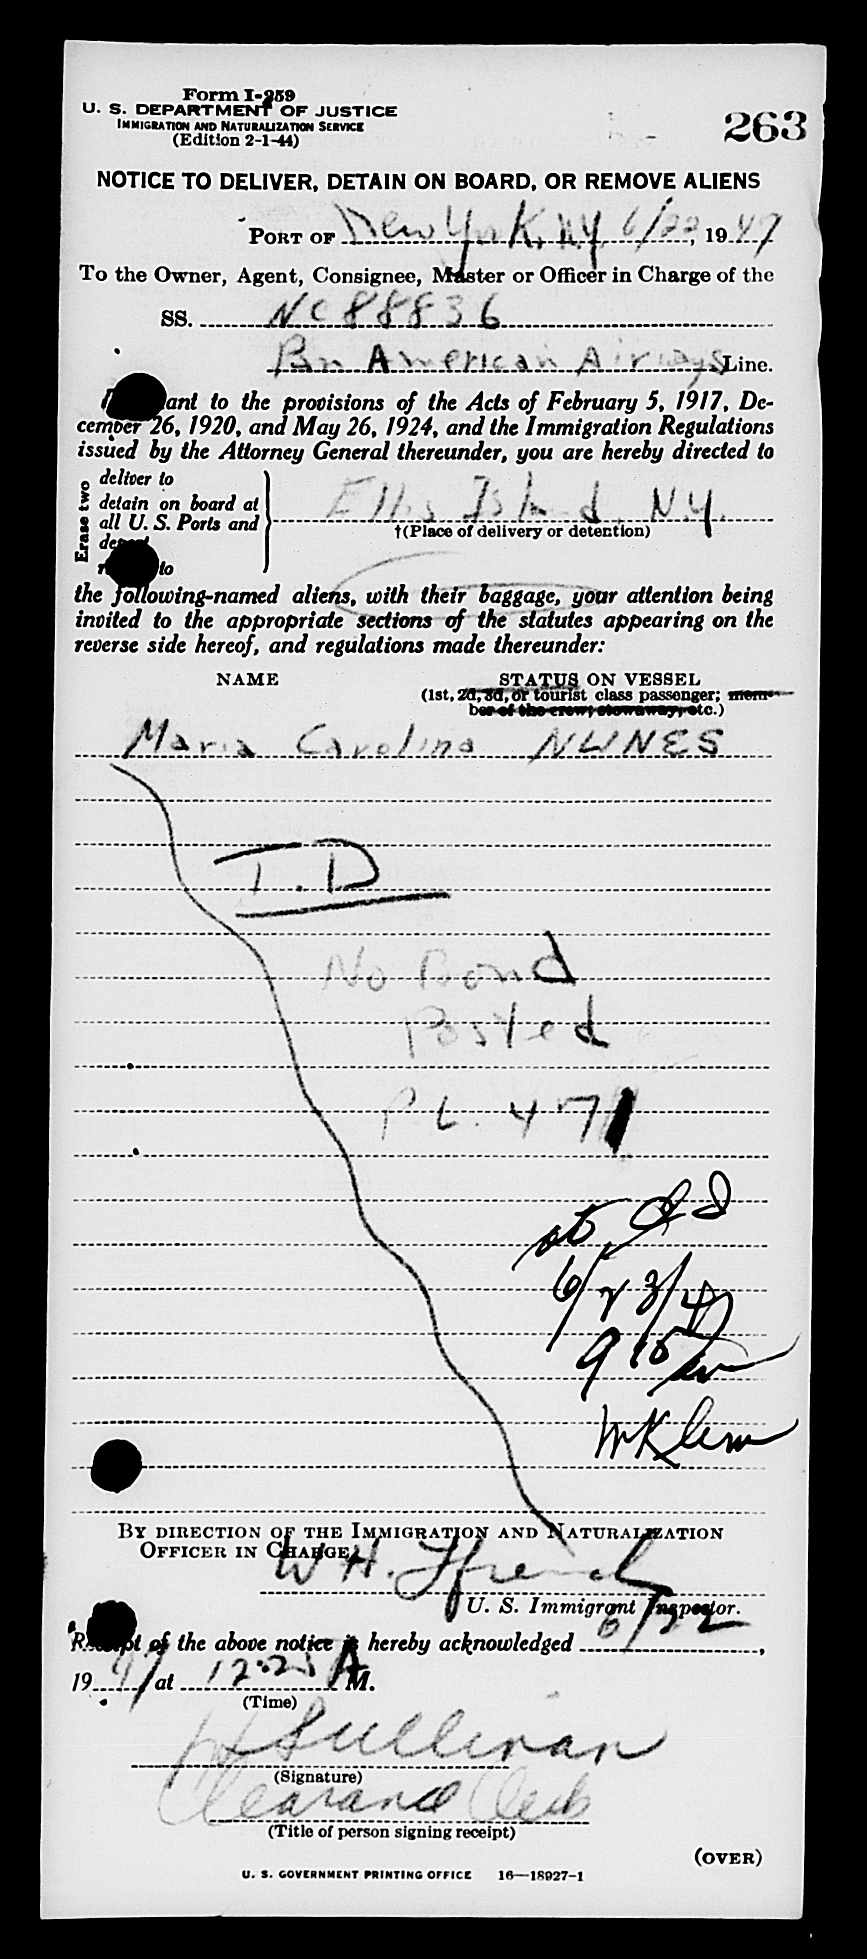 Form I-259
U. S. DEPARTMENT OF JUSTICE
IMMIGRATION AND NATURALIZATION SERVICE
(Edition 2-1-44)
263
NOTICE TO DELIVER, DETAIN ON BOARD, OR REMOVE ALIENS
PORT OF New York, N.Y. 6/22, 1947
To the Owner, Agent, Consignee, Master or Officer in Charge of the
SS. NC 88836
Pan American Airways Line.
ant to the provisions of the Acts of February 5, 1917, De-
cember 26, 1920, and May 26, 1924, and the Immigration Regulations
issued by the Attorney General thereunder, you are hereby directed to
Erase two
deliver to
detain on board at
all U. S. Ports and
to
Ellis Island, N.Y.
†(Place of delivery or detention)
the following-named aliens, with their baggage, your attention being
invited to the appropriate sections of the statutes appearing on the
reverse side hereof, and regulations made thereunder:
NAME
STATUS ON VESSEL
(1st, 2d, 3d, or tourist class passenger; mem-
ber of the crew; stowaway, etc.)
Maria Carolina NUNES
T.D
No Bond
Posted
P.L. 471
6/23/47
9 10
BY DIRECTION OF THE IMMIGRATION AND NATURALIZATION
OFFICER IN CHARGE
W H. Ffrench
U. S. Immigrant Inspector.
Receipt of the above notice is hereby acknowledged 6/22,
1947 at 12:25 A M.
(Time)
Sullivan
(Signature)
Clearance Clerk
(Title of person signing receipt)
(OVER)
U. S. GOVERNMENT PRINTING OFFICE 16—18927-1